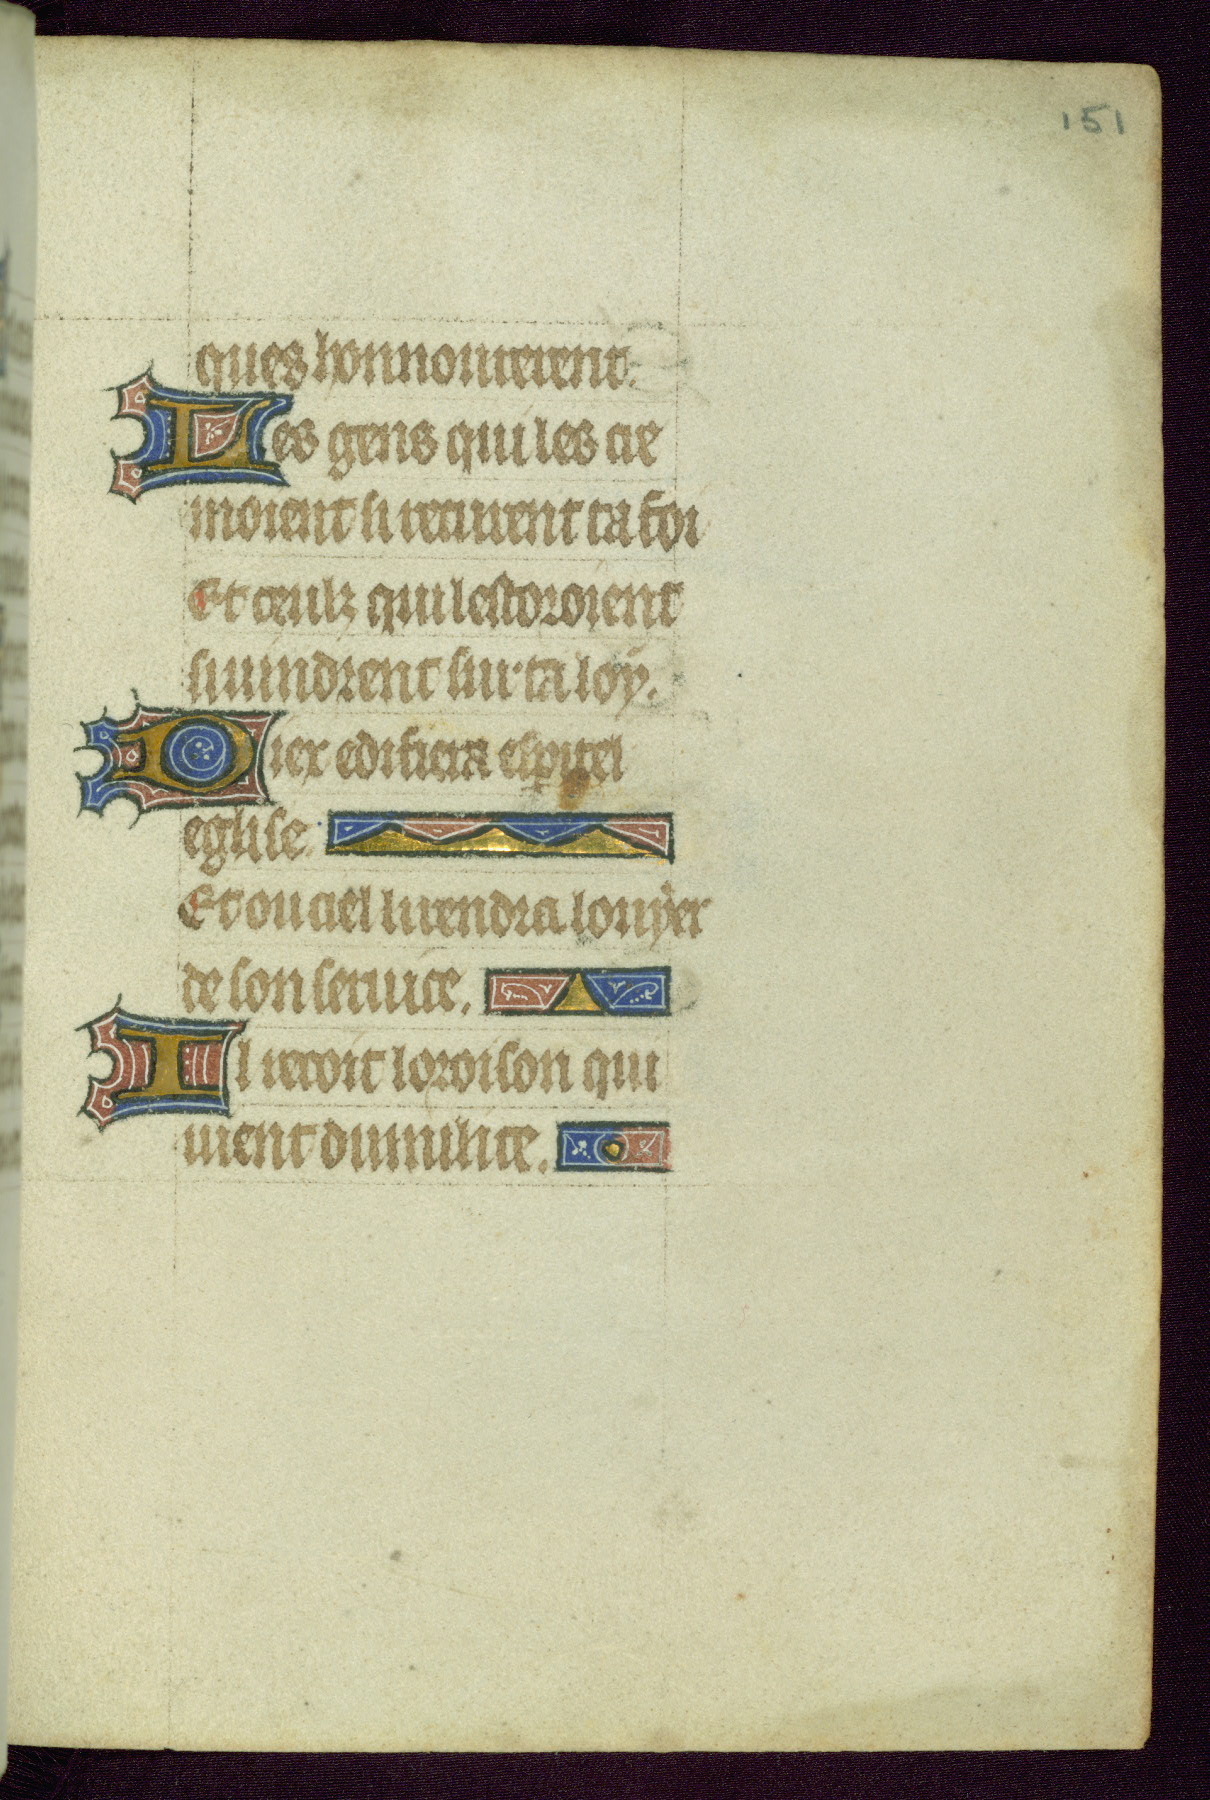 151
ques honnourerent.
Les gens qui les cre
moient si recurent ta foi
Et ceulz qui lestoroient
si uindrent sur ta loy.
Diex edifiera espirel
eglise.
Et ou ciel li rendra louyer
de son seruice.
Il recoit loroison qui
uient dumilite.